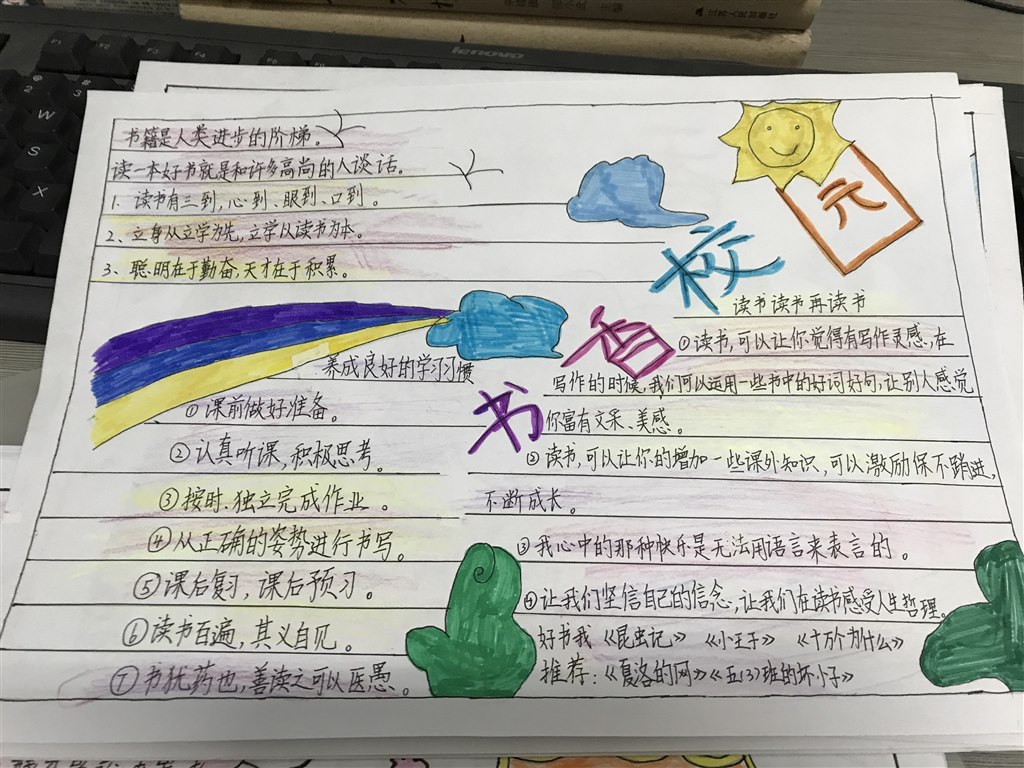 江苏人民出版社
lenovo
书籍是人类进步的阶梯。
读一本好书就是和许多高尚的人谈话。
1. 读书有三到,心到、眼到、口到。
2、立身从立学为先,立学以读书为本。
3、聪明在于勤奋,天才在于积累。
元
校
香
书
养成良好的学习习惯
①课前做好准备。
②认真听课,积极思考。
③按时、独立完成作业。
④从正确的姿势进行书写。
⑤课后复习,课后预习。
⑥读书百遍,其义自见。
⑦书犹药也,善读之可以医愚。
读书读书再读书
①读书,可以让你觉得有写作灵感,在
写作的时候,我们可以运用一些书中的好词好句,让别人感觉
你富有文采、美感。
②读书,可以让你的增加一些课外知识,可以激励保不踏进,
不断成长。
③我心中的那种快乐是无法用语言来表言的。
④让我们坚信自己的信念,让我们在读书感受人生哲理。
好书我《昆虫记》《小王子》《十万个为什么》
推荐:《夏洛的网》《五(3)班的坏小子》
W
S
X